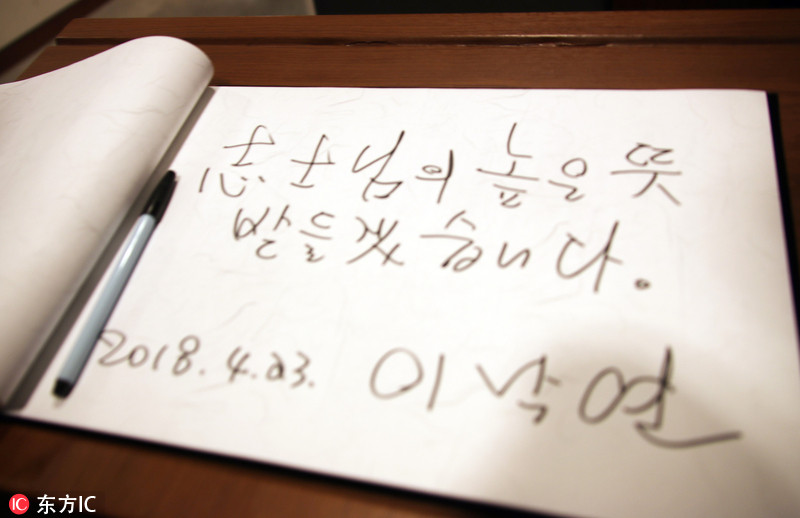 志士님의 높은 뜻
받들겠습니다.
2018.4.23. 이낙연
IC 东方IC